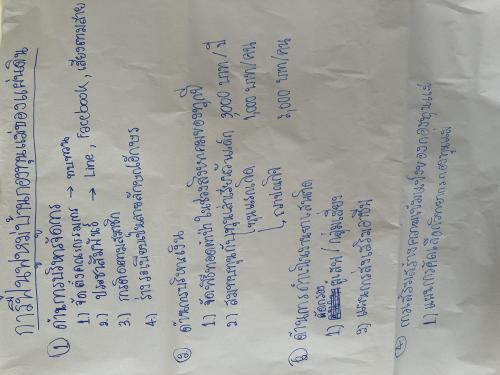 การฟื้นฟูหมู่บ้านกองทุนแม่ของแผ่นดิน
① ด้านการบริหารจัดการ
1.) จัดตั้งคณะกรรมการ → ทบทวน
2.) ประชาสัมพันธ์ → Line, Facebook, เสียงตามสาย
3.) การติดตามสมาชิก
4.) ร่างระเบียบเป็นลายลักษณ์อักษร
② ด้านการบริหารเงิน
1.) จัดพิธีทอดผ้าป่า ในช่วงสิงหาคมของทุกปี
2.) มอบทุน 3000 บาท / ปี
1,000 บาท/คน
ณาปนกิจ 2,000 บาท/คน
③ ด้านการดำเนินงานยาเสพติด
1) ผู้เสพ / กลุ่มเสี่ยง
2) แผนการส่งเสริมอาชีพ
④ การเสริมสร้างความเข้มแข็งของกองทุนแม่
1) แผนการ กองทุนแม่